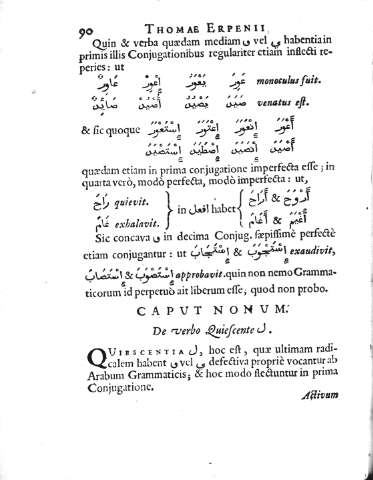 90 THOMAE ERPENII
Quin & verba quædam mediam و vel ي habentia in
primis illis Conjugationibus regulariter etiam inflecti re-
peries: ut
عَوِرَ يَعْوَرُ أَعْوَرُ عَاوِرٌ monotulus fuit.
صَيِدَ يَصْيَدُ أَصْيَدُ صَايِدٌ venatus est.
& sic quoque أَعْوَرَ اِعْتَوَرَ اِسْتَعْوَرَ
أَصْيَدَ
quædam etiam in prima conjugatione imperfecta esse; in
quarta verò, modò perfecta, modò imperfecta: ut,
رَاحَ quievit. } in افعل habet { أَرْوَحَ & أَرَاحَ
غَامَ exhalavit. أَغْيَمَ & أَغَامَ
Sic concava و in decima Conjug. sæpissimè perfectè
etiam conjugantur: ut اِسْتَجْوَبَ & اِسْتَجَابَ exaudivit,
اِسْتَصْوَبَ & اِسْتَصَابَ approbavit. quin non nemo Gramma-
ticorum id perpetuò ait liberum esse; quod non probo.
CAPUT NONUM.
De verbo Quiescente ل.
QUIESCENTIA ل, hoc est, quæ ultimam radi-
calem habent و vel ي defectiva propriè vocantur ab
Arabum Grammaticis; & hoc modo flectuntur in prima
Conjugatione.
Activum